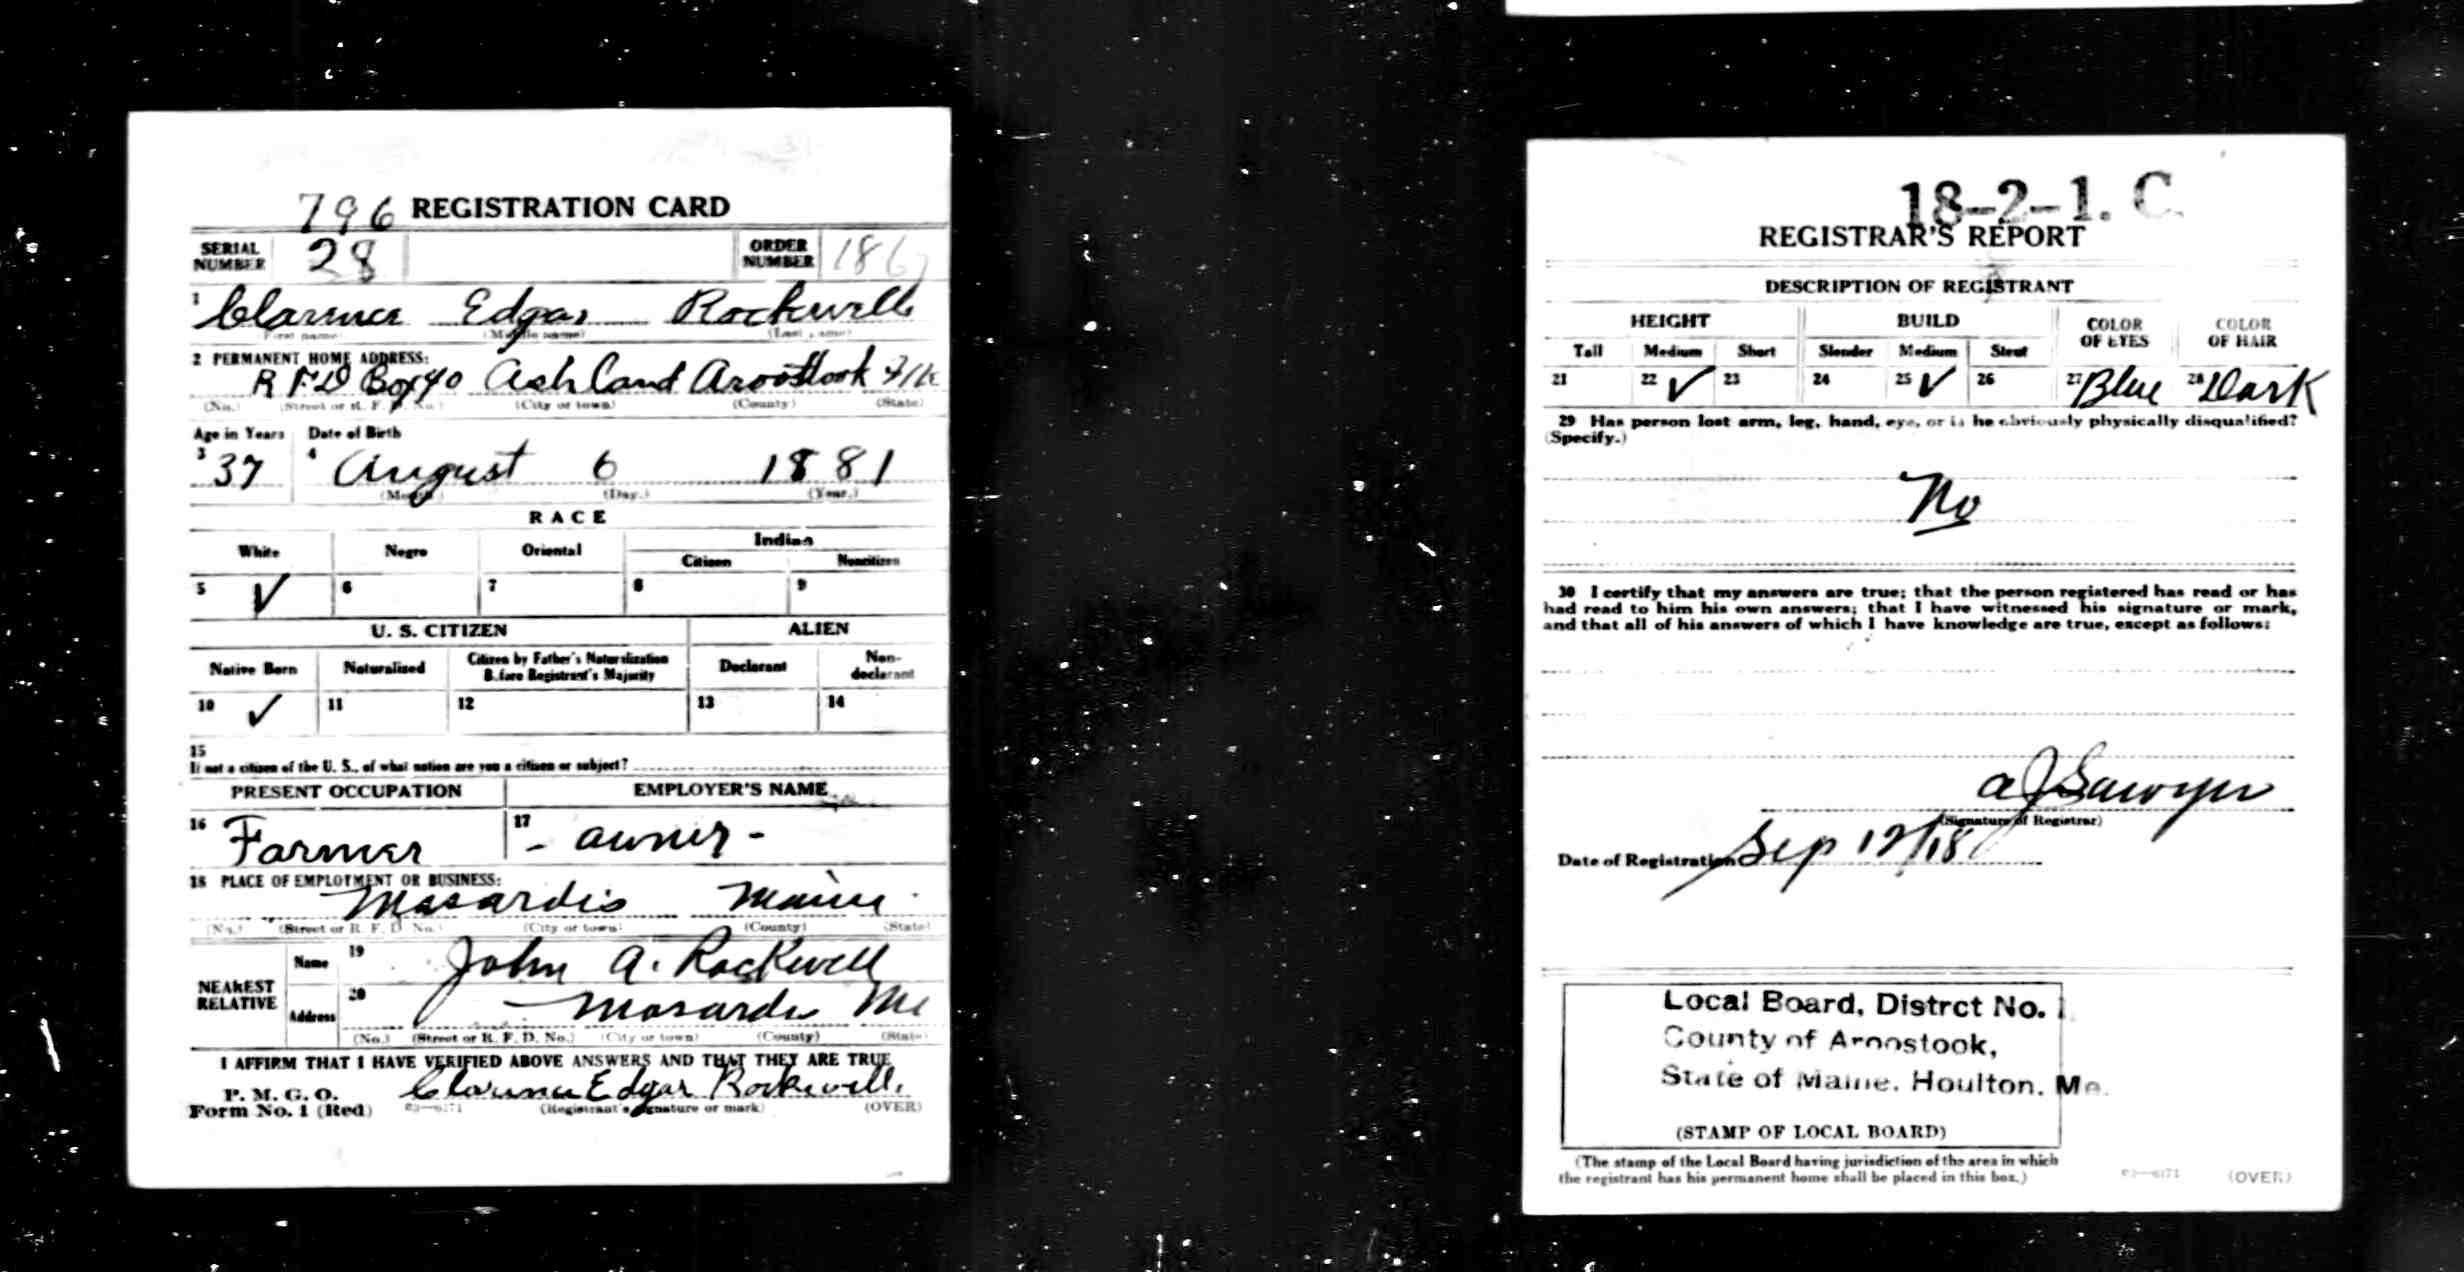 796 REGISTRATION CARD
SERIAL NUMBER 28 ORDER NUMBER 186
1 Clarence Edgar Rockwell
(First name) (Middle name) (Last name)
2 PERMANENT HOME ADDRESS:
R F D Box 40 Ashland Aroostook Me
(No.) (Street or R. F. D. No.) (City or town) (County) (State)
Age in Years Date of Birth
3 37 4 August 6 1881
(Month.) (Day.) (Year.)
RACE
White Negro Oriental Indian
Citizen Noncitizen
5 ✓ 6 7 8 9
U. S. CITIZEN ALIEN
Native Born Naturalized Citizen by Father's Naturalization Before Registrant's Majority Declarant Non-declarant
10 ✓ 11 12 13 14
15
If not a citizen of the U. S., of what nation are you a citizen or subject?
PRESENT OCCUPATION EMPLOYER'S NAME
16 Farmer 17 - owner -
18 PLACE OF EMPLOYMENT OR BUSINESS:
Masardis Maine
(No.) (Street or R. F. D. No.) (City or town) (County) (State)
NEAREST RELATIVE Name 19 John A. Rockwell
Address 20 Masardis Me
(No.) (Street or R. F. D. No.) (City or town) (County) (State)
I AFFIRM THAT I HAVE VERIFIED ABOVE ANSWERS AND THAT THEY ARE TRUE
P. M. G. O.
Form No. 1 (Red) 03—6171 Clarence Edgar Rockwell
(Registrant's signature or mark) (OVER)
18-2-1. C.
REGISTRAR'S REPORT
DESCRIPTION OF REGISTRANT
HEIGHT BUILD COLOR OF EYES COLOR OF HAIR
Tall Medium Short Slender Medium Stout
21 22 ✓ 23 24 25 ✓ 26 27 Blue 28 Dark
29 Has person lost arm, leg, hand, eye, or is he obviously physically disqualified?
(Specify.)
No
30 I certify that my answers are true; that the person registered has read or has
had read to him his own answers; that I have witnessed his signature or mark,
and that all of his answers of which I have knowledge are true, except as follows:
A J Sawyer
(Signature of Registrar)
Date of Registration Sep 12/18
Local Board, Distrct No. 1.
County of Aroostook,
State of Maine. Houlton. Me.
(STAMP OF LOCAL BOARD)
(The stamp of the Local Board having jurisdiction of the area in which
the registrant has his permanent home shall be placed in this box.)
03—6171 (OVER)